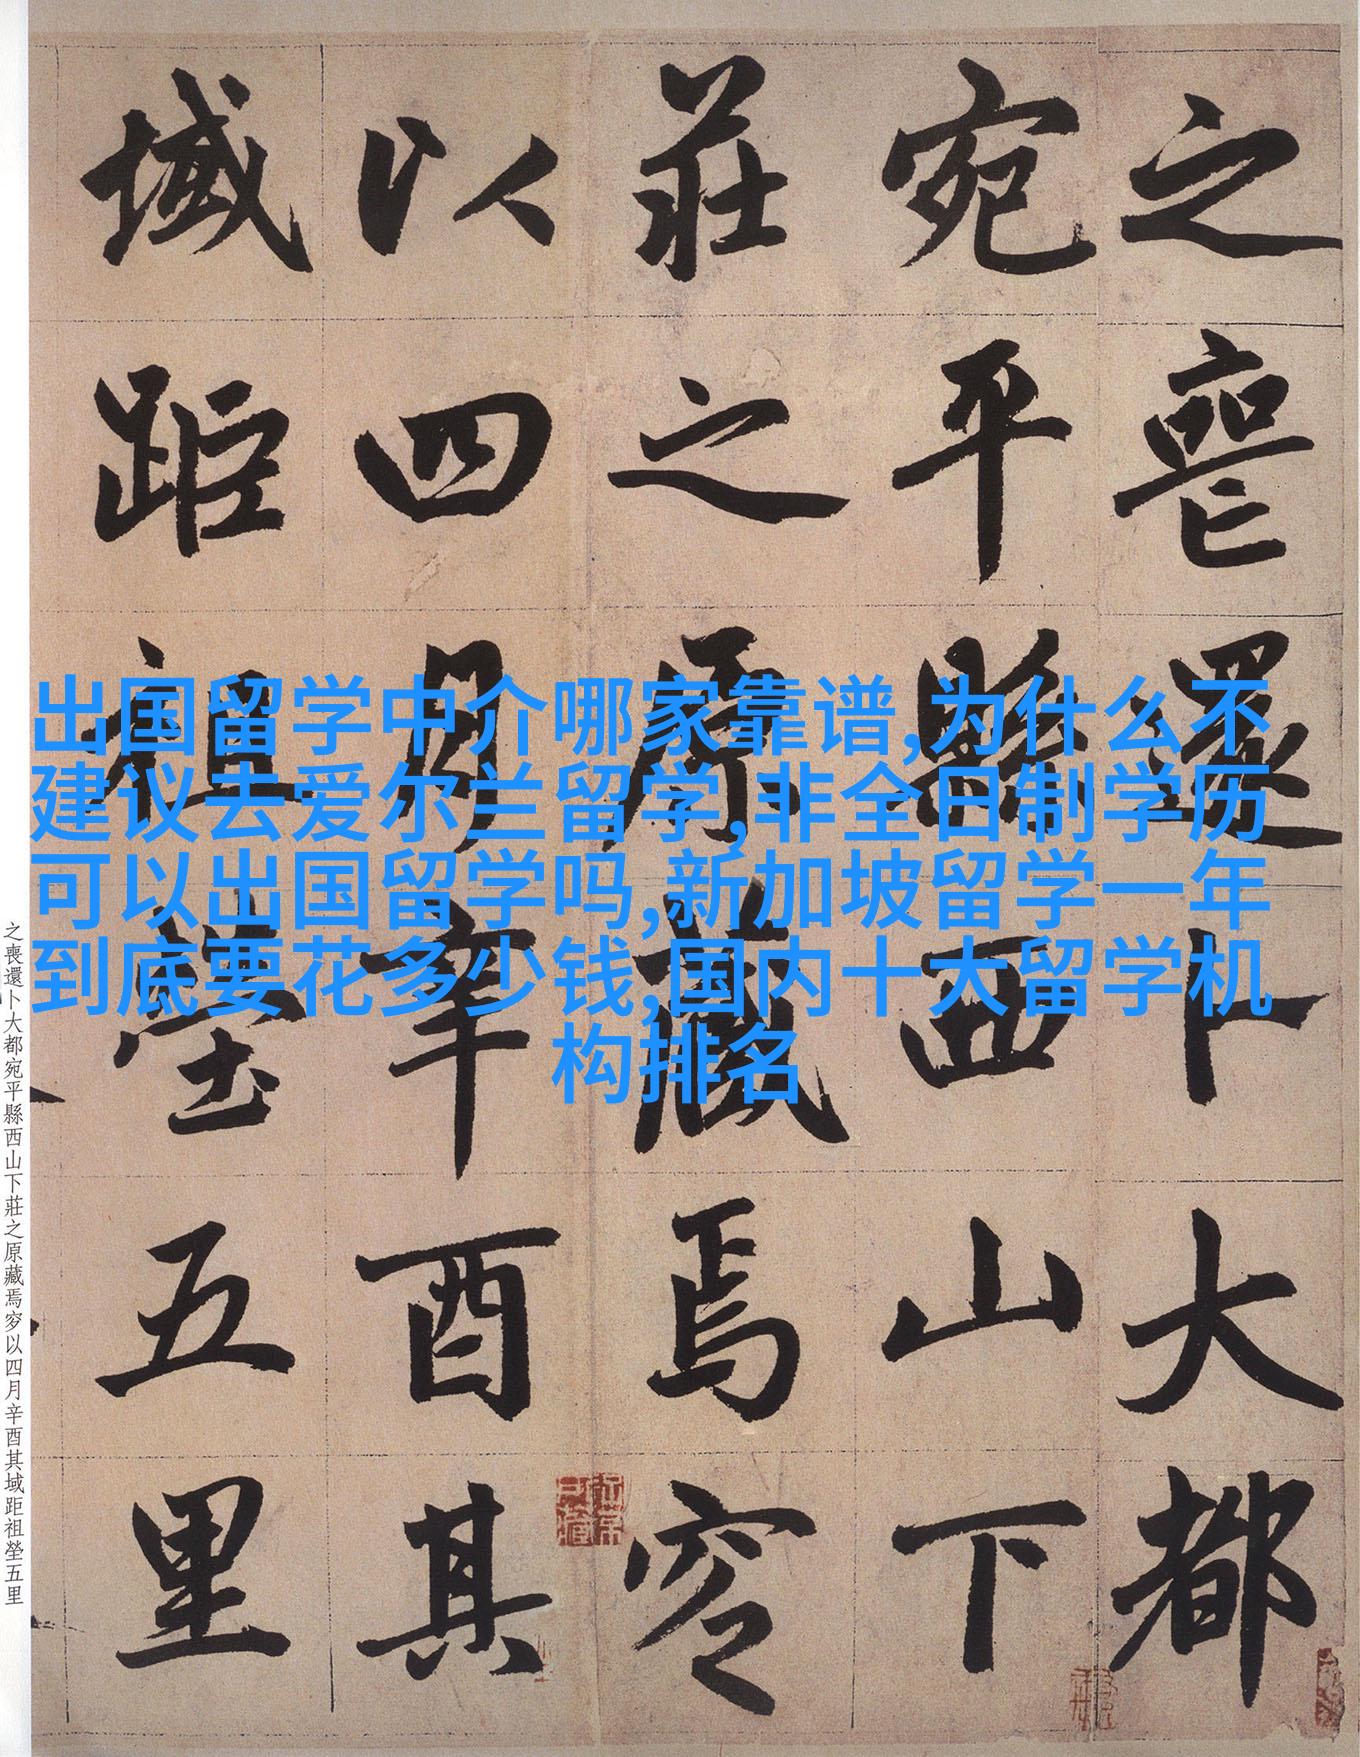 之喪還卜大都
宛平縣西山下
莊之原藏焉窆
以四月辛酉其
域距祖塋五里
出国留学中介哪家靠谱,为什么不
建议去爱尔兰留学,非全日制学历
可以出国留学吗,新加坡留学一年
到底要花多少钱,国内十大留学机
构排名
之喪還卜大都宛平縣西山下莊之原藏焉窆以四月辛酉其域距祖塋五里